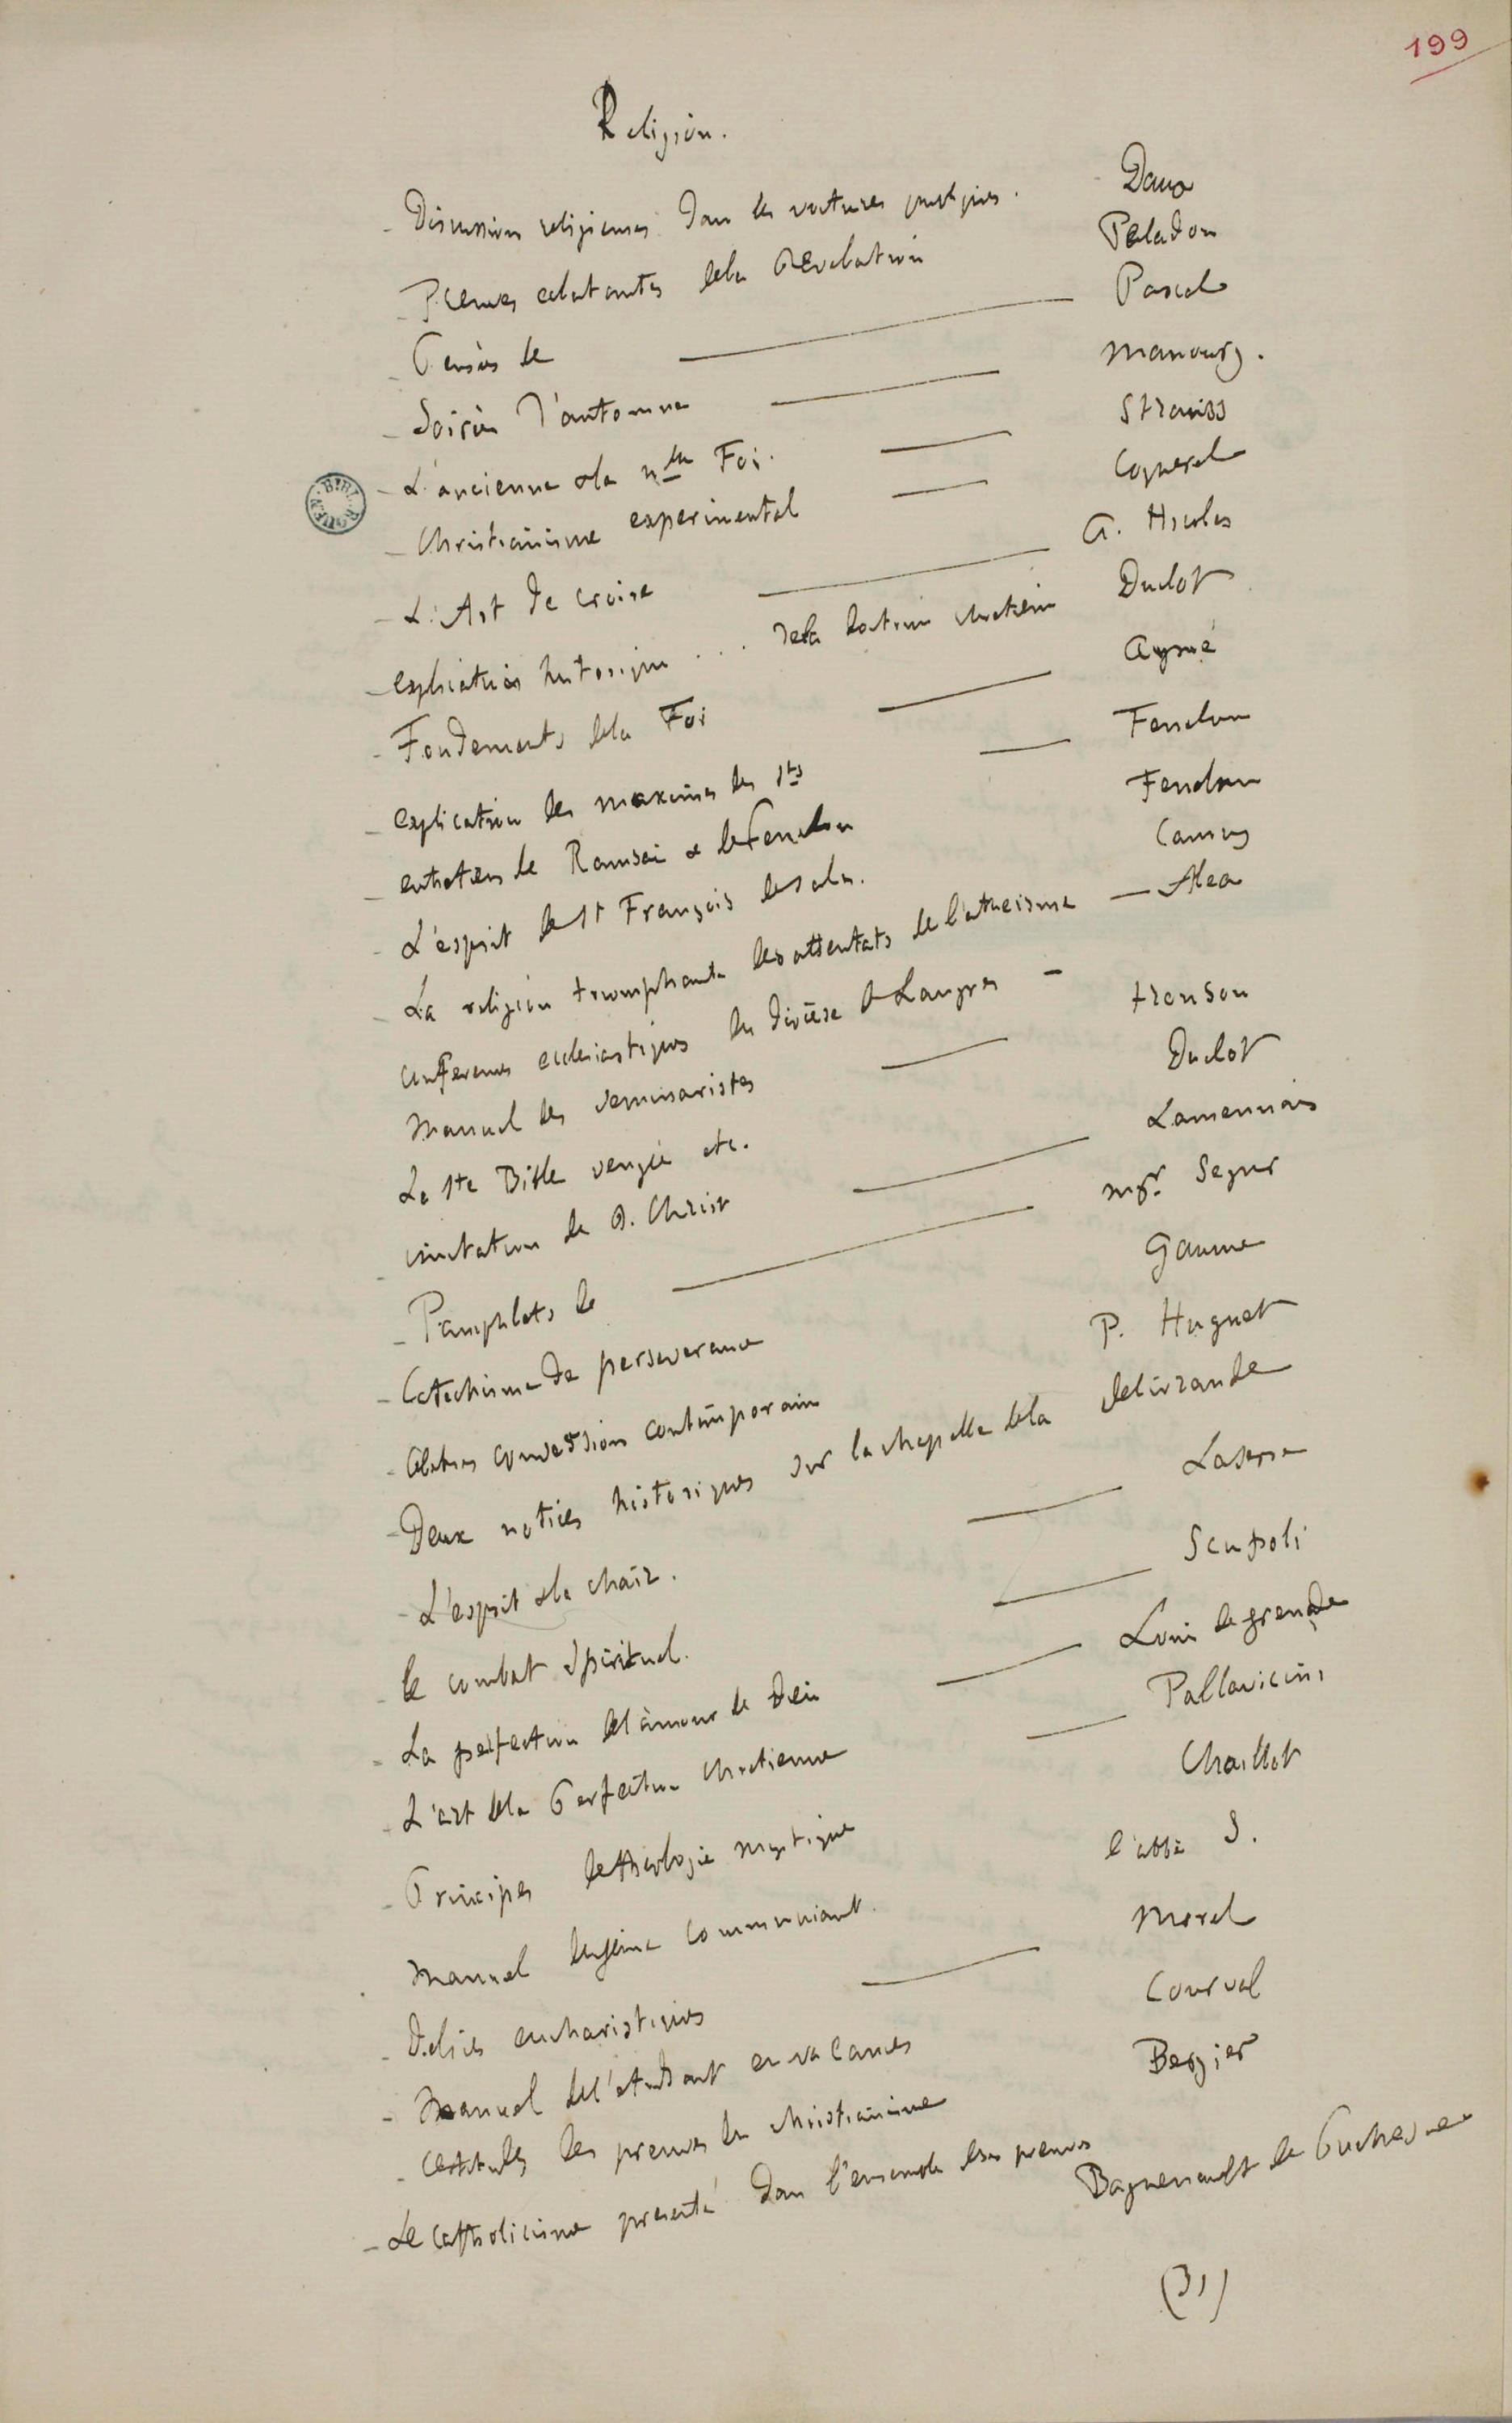 199
Religion.
- Discussions religieuses dans les voitures publiques. Daux
- Preuves eclatantes de la Révélation Peladan
- Pensées de — Pascal
- Soirées d'automne — Manoury.
- L'ancienne & la nlle Foi. — Strauss
- Christianisme experimental — Coquerel
- L'Art de croire — A. Nicolas
- explication historique ... de la doctrine chretienne Duclot
- Fondements de la Foi — Aymé
- explication des maximes des Sts — Fenelon
- entretiens de Ramsai & de Fenelon Fenelon
- L'esprit de St François de Sales. Camus
- La religion triomphante des attentats de l'atheisme — Alea
conferences ecclesiastiques du diocèse de Langres —
Manuel des seminaristes — tronson
La Ste Bible vengée etc. Duclot
- imitation de J. Christ — Lamennais
- Pamphlets de — Mgr. Segur
- Catechisme de perseverance Gaume
- Celebres conversions contemporaines P. Huguet
- Deux notices historiques sur la chapelle de la delivrande
- L'esprit & la chair. — Laserre
- le combat spirituel. — Scupoli
- La perfection de l'amour de Dieu — Louis de grenade
- L'art de la Perfection chretienne — Pallavicini
- Principes de theologie mystique Chaillot
. Manuel du jeune communiant. l'abbé S.
- Delices eucharistiques — Morel
- Manuel de l'etudiant en vacances Courval
- Certitudes des preuves du christianisme Bergier
- Le Catholicisme presenté dans l'ensemble de ses preuves Baguenault de Puchesne
(31)
BIBL. ROUEN